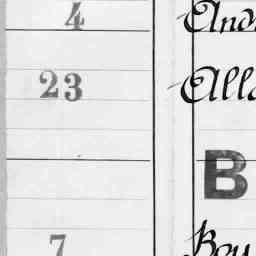 4 And
23 Alla
B
7 Boy